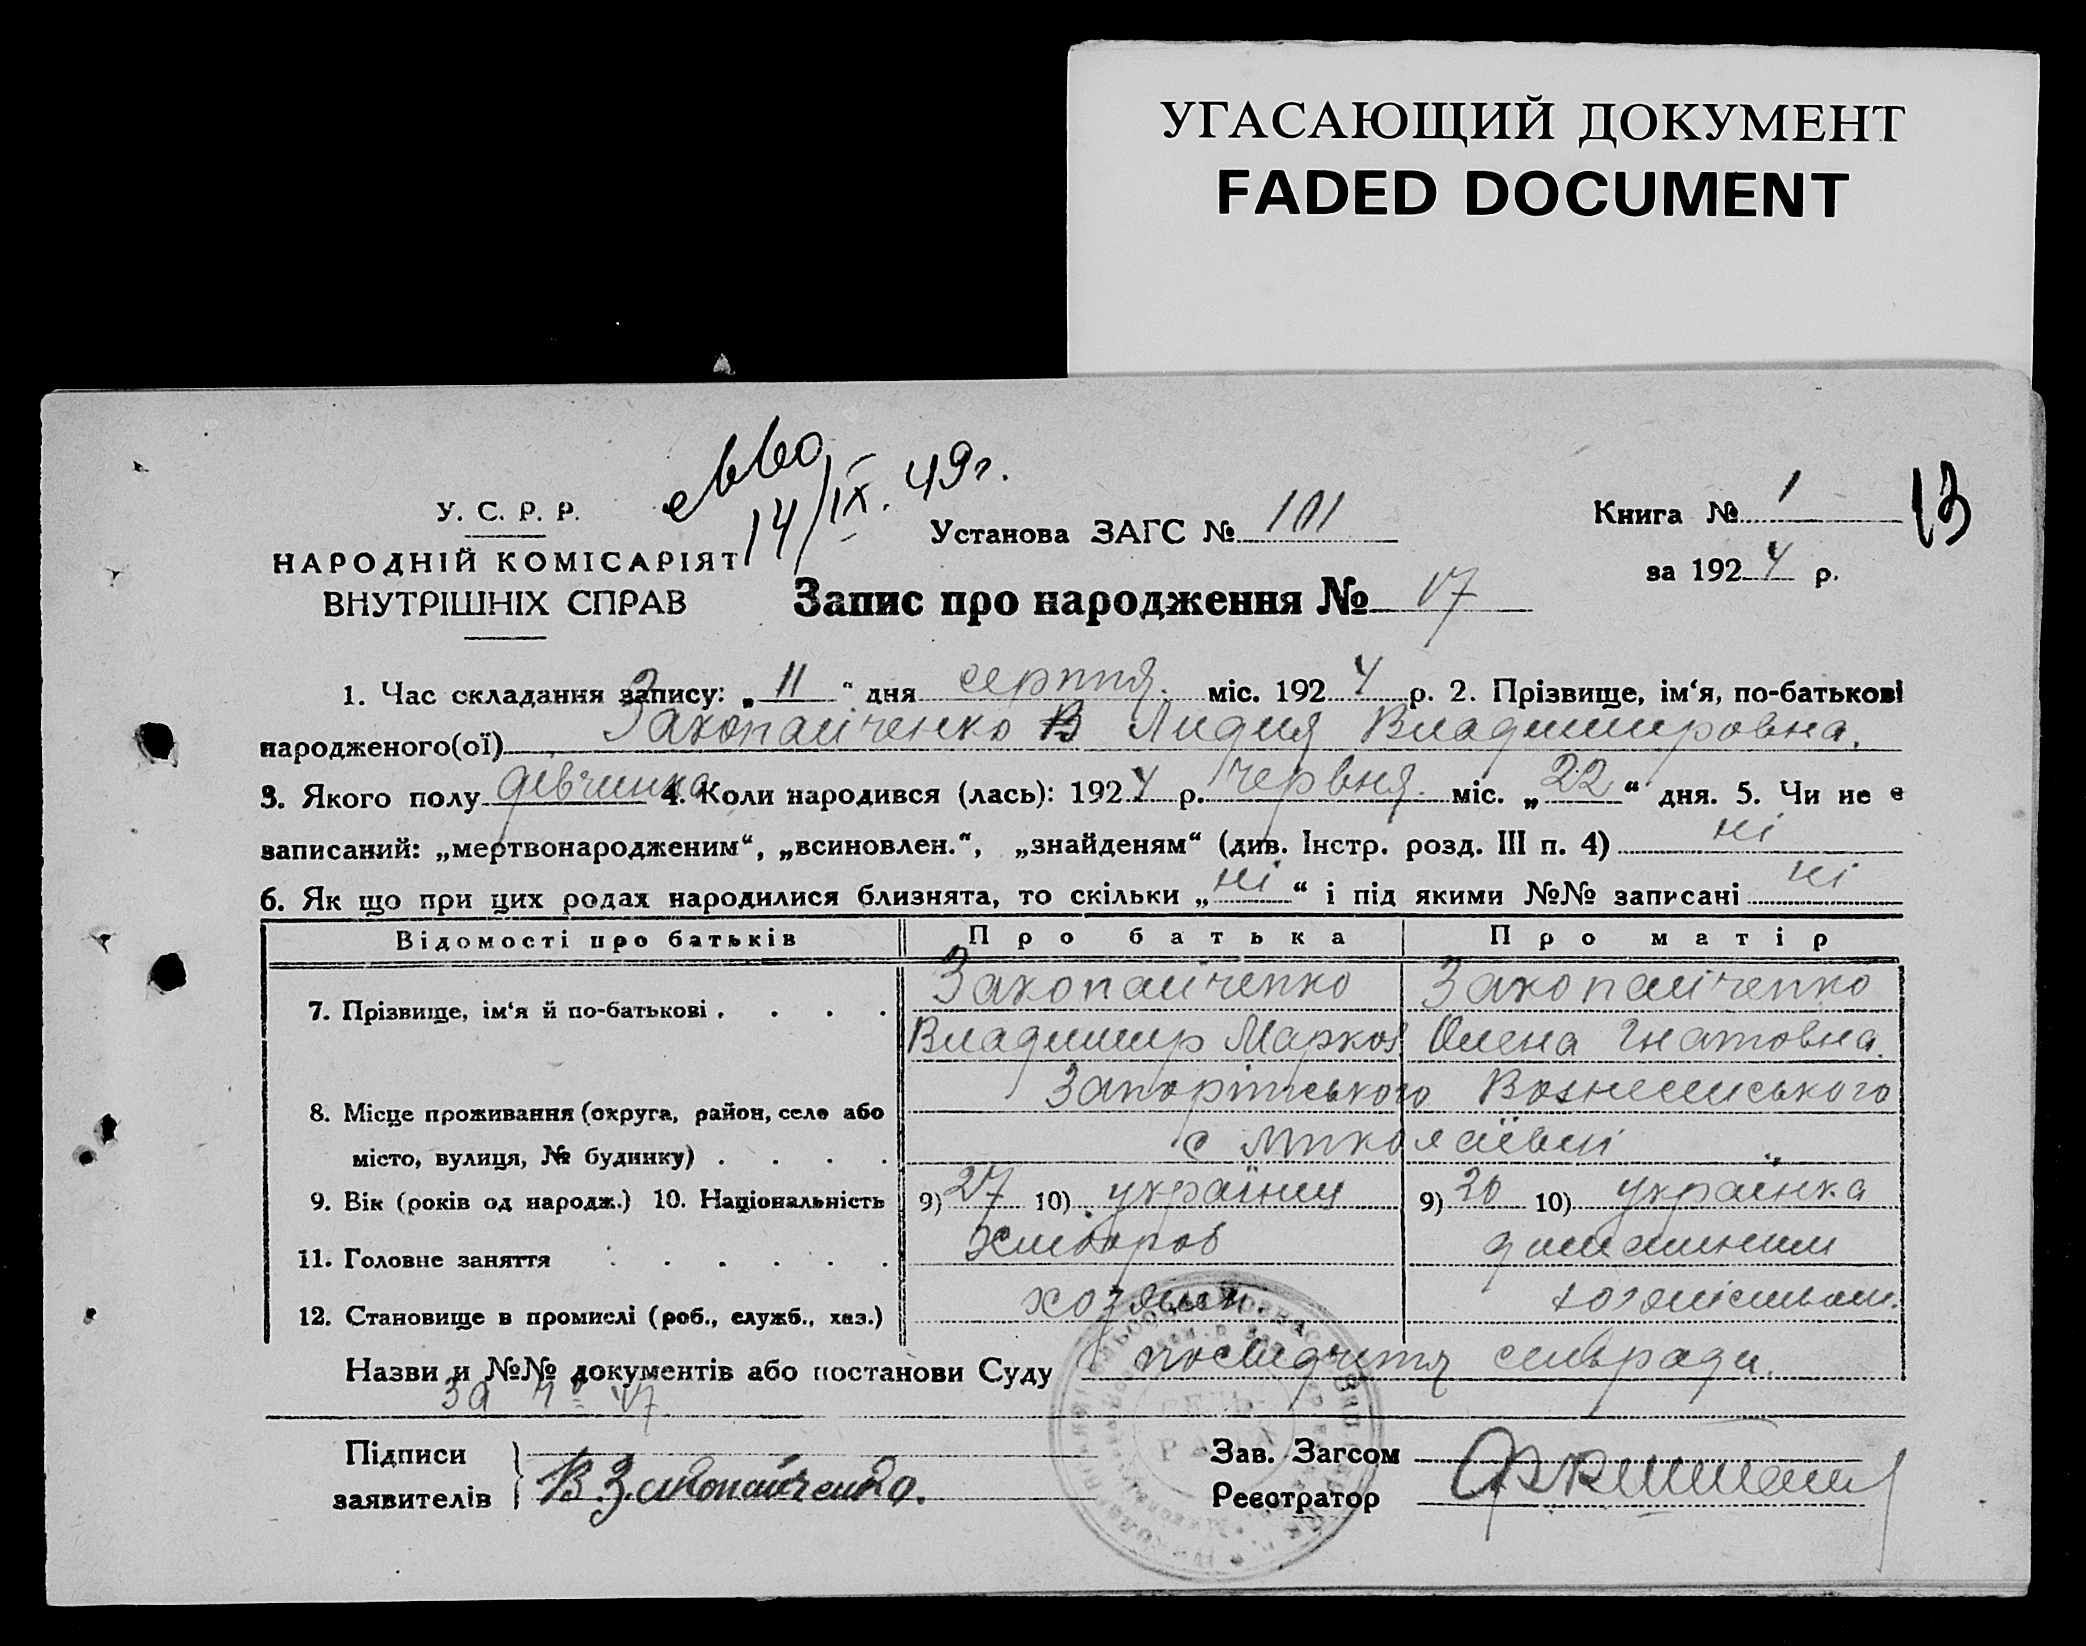 УГАСАЮЩИЙ ДОКУМЕНТ
FADED DOCUMENT
14/IX. 49г.
У. С. Р. Р.
НАРОДНІЙ КОМІСАРІЯТ
ВНУТРІШНІХ СПРАВ
Установа ЗАГС № 101
Книга № 1
13
за 1924 р.
Запис про народження № 17
1. Час складання запису: „11“ дня серпня. міс. 1924 р. 2. Прізвище, ім‘я, по-батькові
народженого(ої) Захопайченко В Лидия Владимировна.
3. Якого полу дівчинка 4. Коли народився (лась): 1924 р. червня. міс. „22“ дня. 5. Чи не є
записаний: „мертвонародженим“, „всиновлен.“, „знайденям“ (див. Інстр. розд. III п. 4) ні
6. Як що при цих родах народилися близнята, то скільки „ні“ і під якими №№ записані ні
Відомості про батьків Про батька Про матір
7. Прізвище, ім‘я й по-батькові . . . . Захопайченко Захопайченко
Владимир Марков Олена Гнатовна.
8. Місце проживання (округа, район, село або Запорітського Вознесенського
місто, вулиця, № будинку) . . . . с Миколаївці „
9. Вік (років од народж.) 10. Національність 9) 27 10) українец 9) 26 10) українка
11. Головне заняття . . . . . . Хлібороб домашним
12. Становище в промислі (роб., служб., хаз.) хозяин. хозяйством.
Назви и №№ документів або постанови Суду посвідчиття сельради.
за № 17
Підписи
заявителів В Захопайченко.
Зав. Загсом
Реєстратор